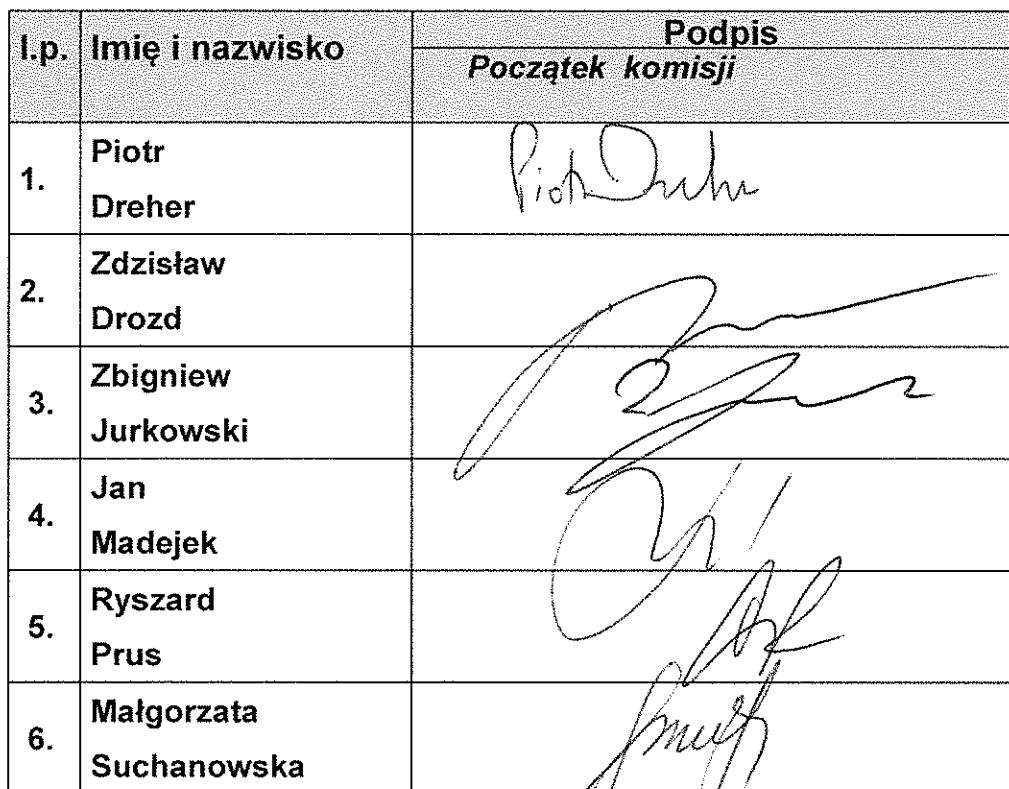 l.p. Imię i nazwisko Podpis
Początek komisji
1. Piotr
Dreher
Piotr Dreher
2. Zdzisław
Drozd
3. Zbigniew
Jurkowski
4. Jan
Madejek
5. Ryszard
Prus
6. Małgorzata
Suchanowska